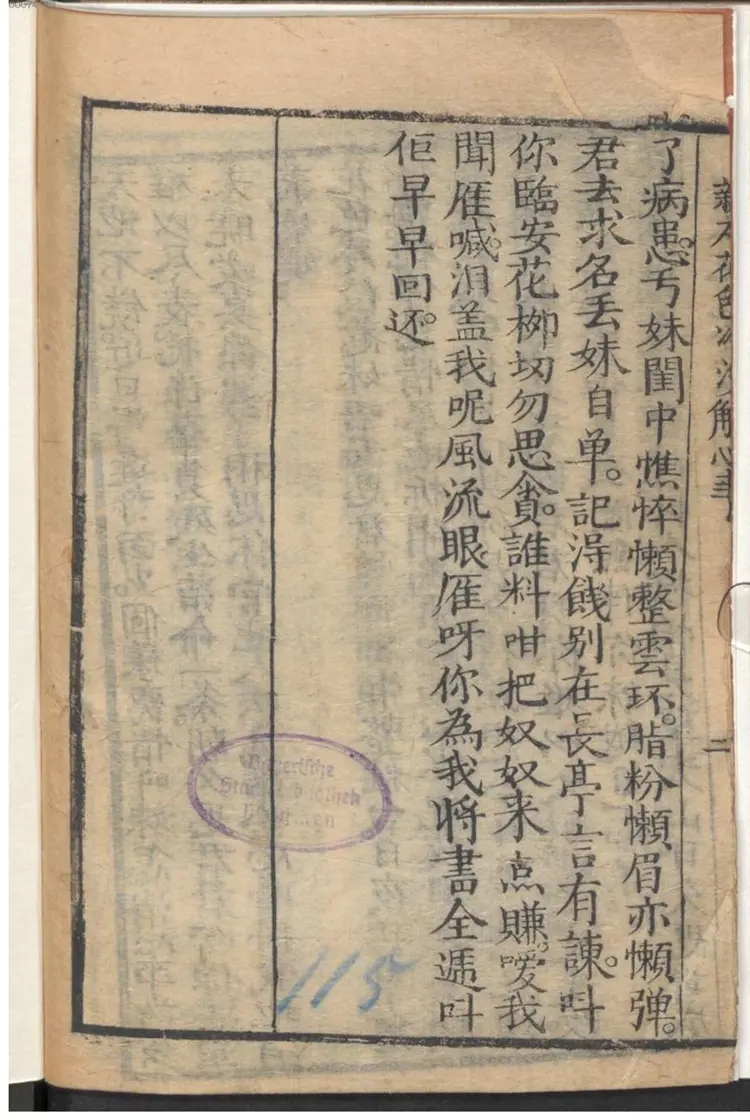 二
了病患。亏妹閨中憔悴懶整雲环。脂粉懶眉亦懶弹。
君去求名丢妹自单。記淂餞别在長亭言有諫。呌
你臨安花柳切勿思貪。誰料咁把奴奴来点賺。嗳我
聞雁喊。泪盖我呢風流眼雁呀你為我將書全逓呌
佢早早回还。
Bayerische
Staatsbibliothek
München
115